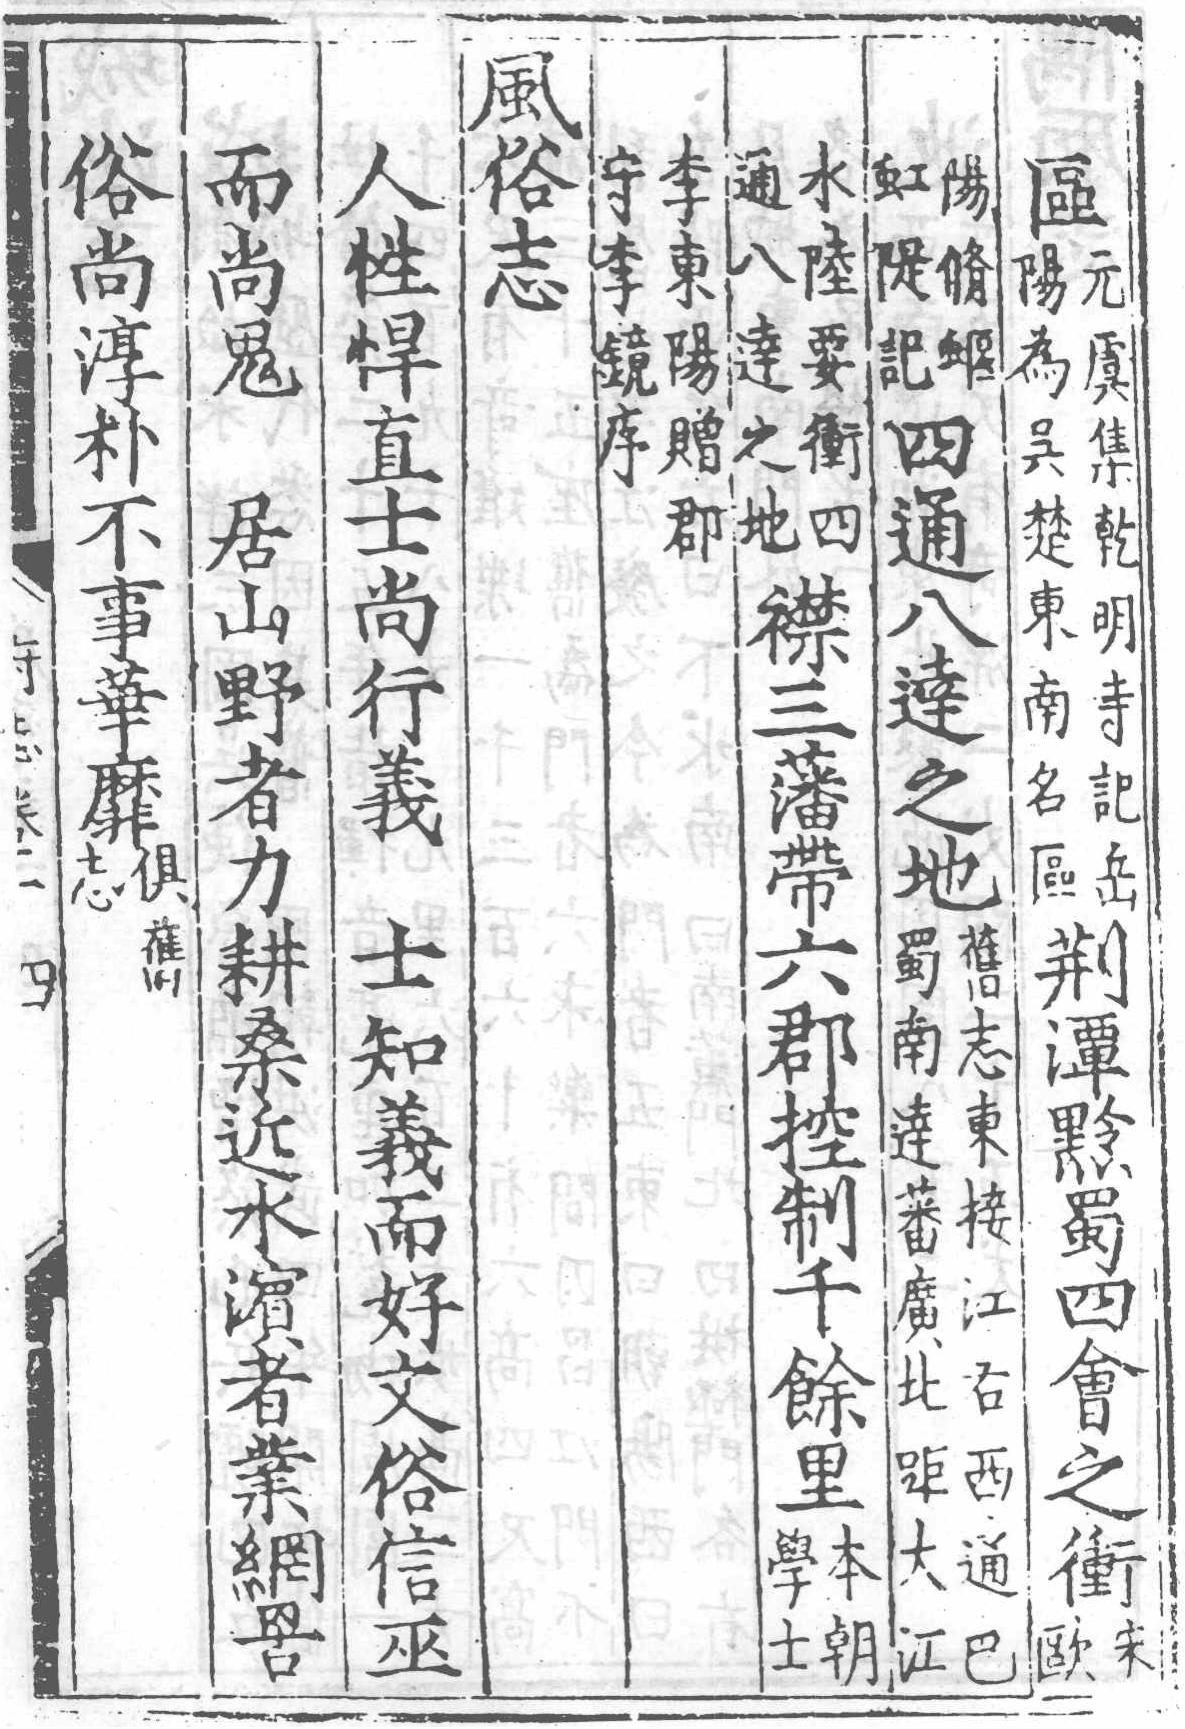 區元虞集乾明寺記岳陽為吳楚東南名區荆潭黔蜀四會之衝宋歐
陽脩蝘虹隄記四通八達之地舊志東接江右西通巴蜀南達蕃廣北距大江
水陸要衝四通八達之地襟三藩帶六郡控制千餘里本朝學士
李東陽贈郡守李鏡序
風俗志
人性悍直士尚行義　士知義而好文俗信巫
而尚鬼　居山野者力耕桑近水濵者業網罟
俗尚淳朴不事華靡俱舊志
府志卷二　四